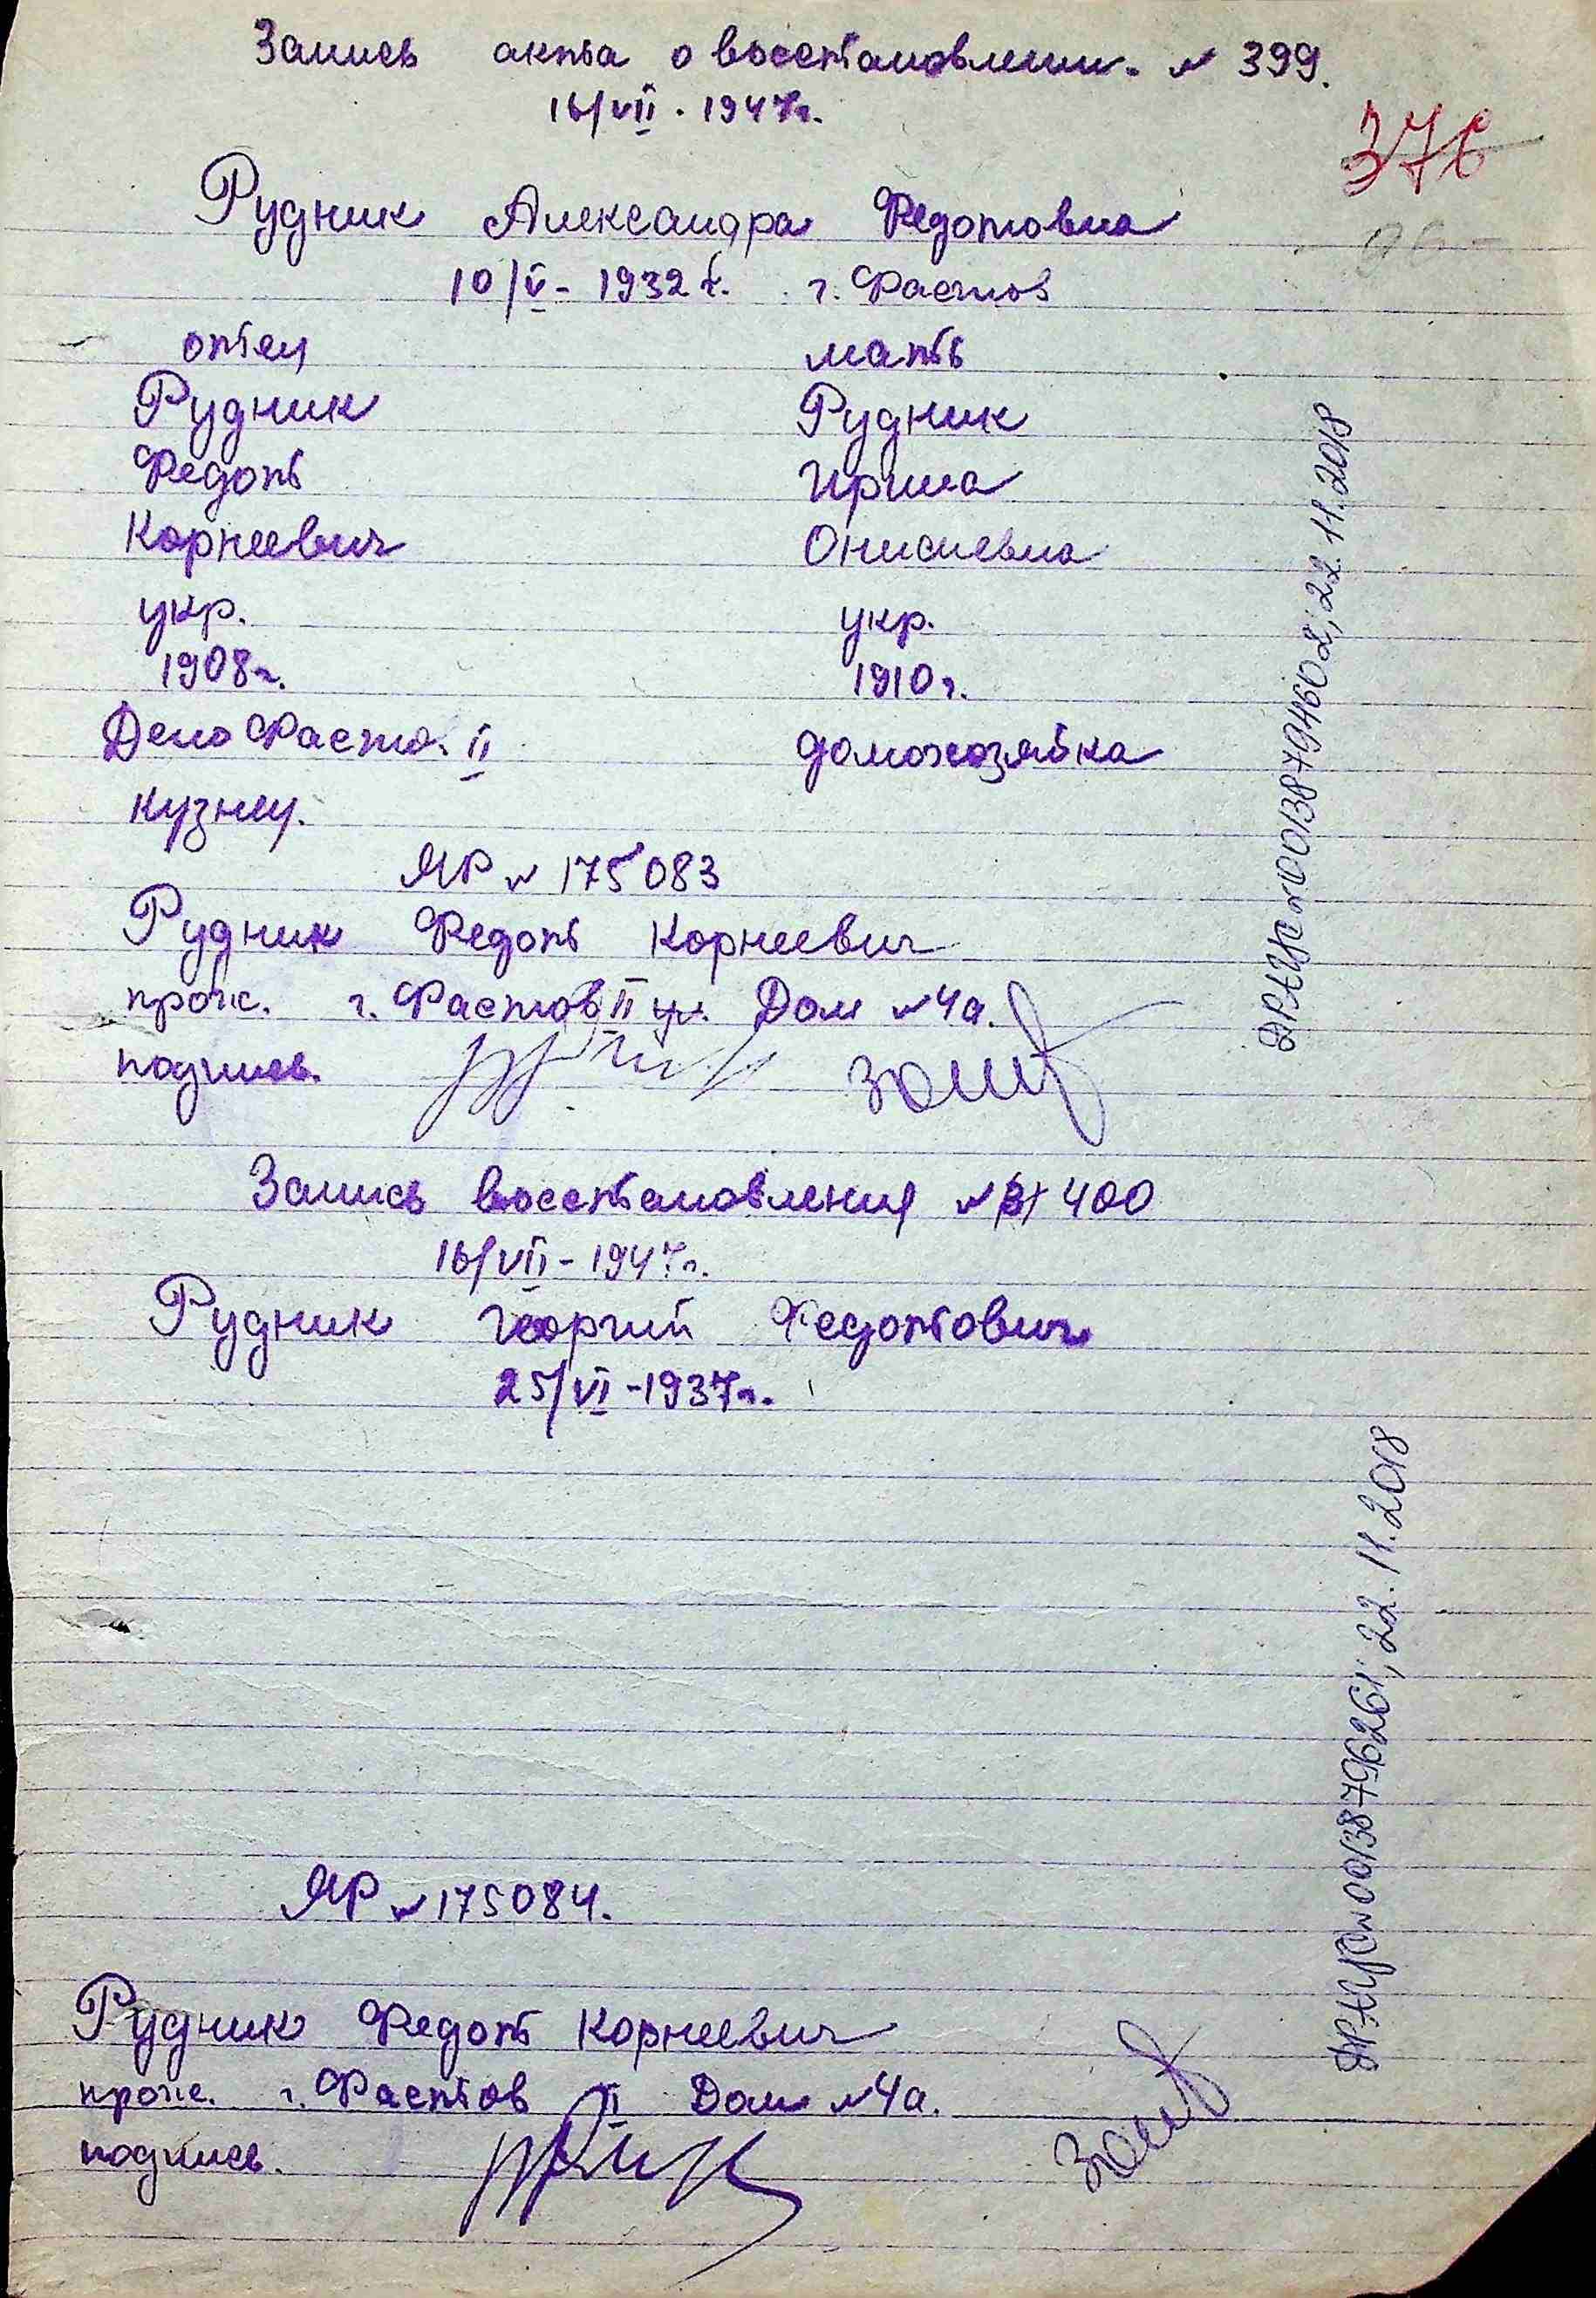 Запись акта о восстановлении. № 399.
16/VII. 1947г.
376
Рудник Александра Федотовна
10/V - 1932 г. г. Фастов
отец мать
Рудник Рудник
Федот Ирина
Корнеевич Онисиевна
укр. укр.
1908г. 1910г.
Депо Фасто. II домохозяйка
кузнец.
ЯР № 175083
Рудник Федот Корнеевич
прож. г. Фастов II ул. Дом № 4а.
подпись.
Запись восстановления № 400
16/VII - 1947г.
Рудник Георгий Федотович
25/VI - 1937г.
ЯР № 175084.
Рудник Федот Корнеевич
прож. г. Фастов II Дом № 4а.
подпись.
ДРАЦС № 00138794602; 22.11.2018
№ 00138796261; 22.11.2018